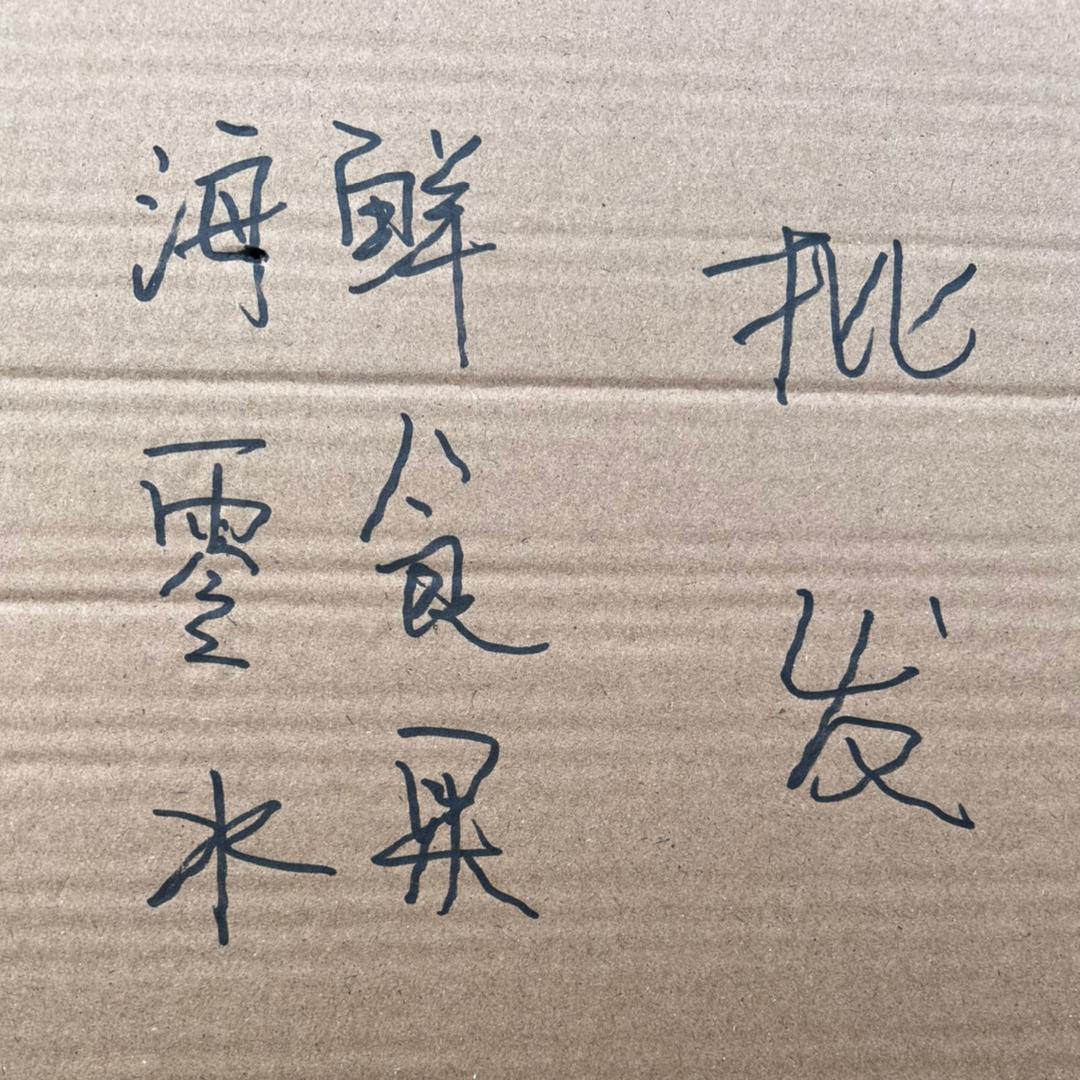 海鲜
零食
水果
批
发